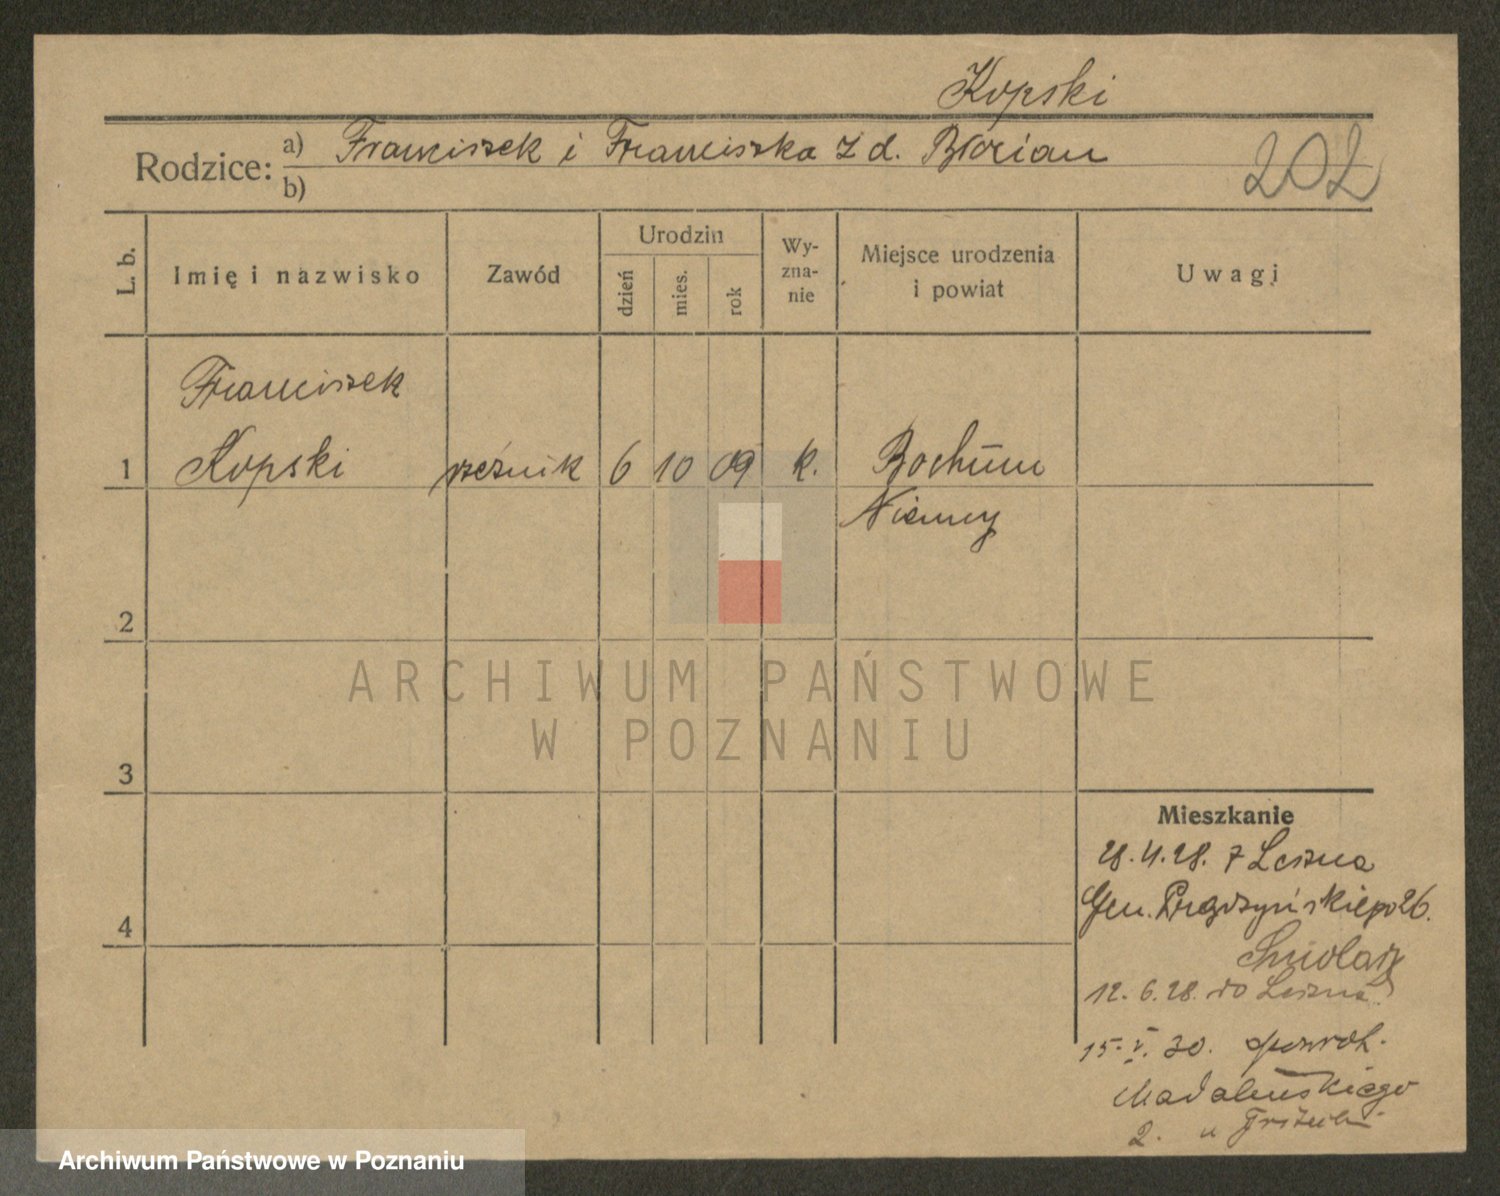 Kopski
Rodzice: a) Franciszek i Franciszka z d. Błorian
202
b)
L. b.
Imię i nazwisko
Zawód
Urodzin
dzień
mies.
rok
Wy-
zna-
nie
Miejsce urodzenia
i powiat
Uwagi
Franciszek
1 Kopski rzeźnik 6 10 09 k. Bochum
Niemcy
2
ARCHIWUM PAŃSTWOWE
W POZNANIU
3
Mieszkanie
28. 4. 28. z Leszna
Gen. Prądzyńskiego 26.
4
12. 6. 28. do Leszna
15. V. 30.
Madalińskiego
2. u
Archiwum Państwowe w Poznaniu